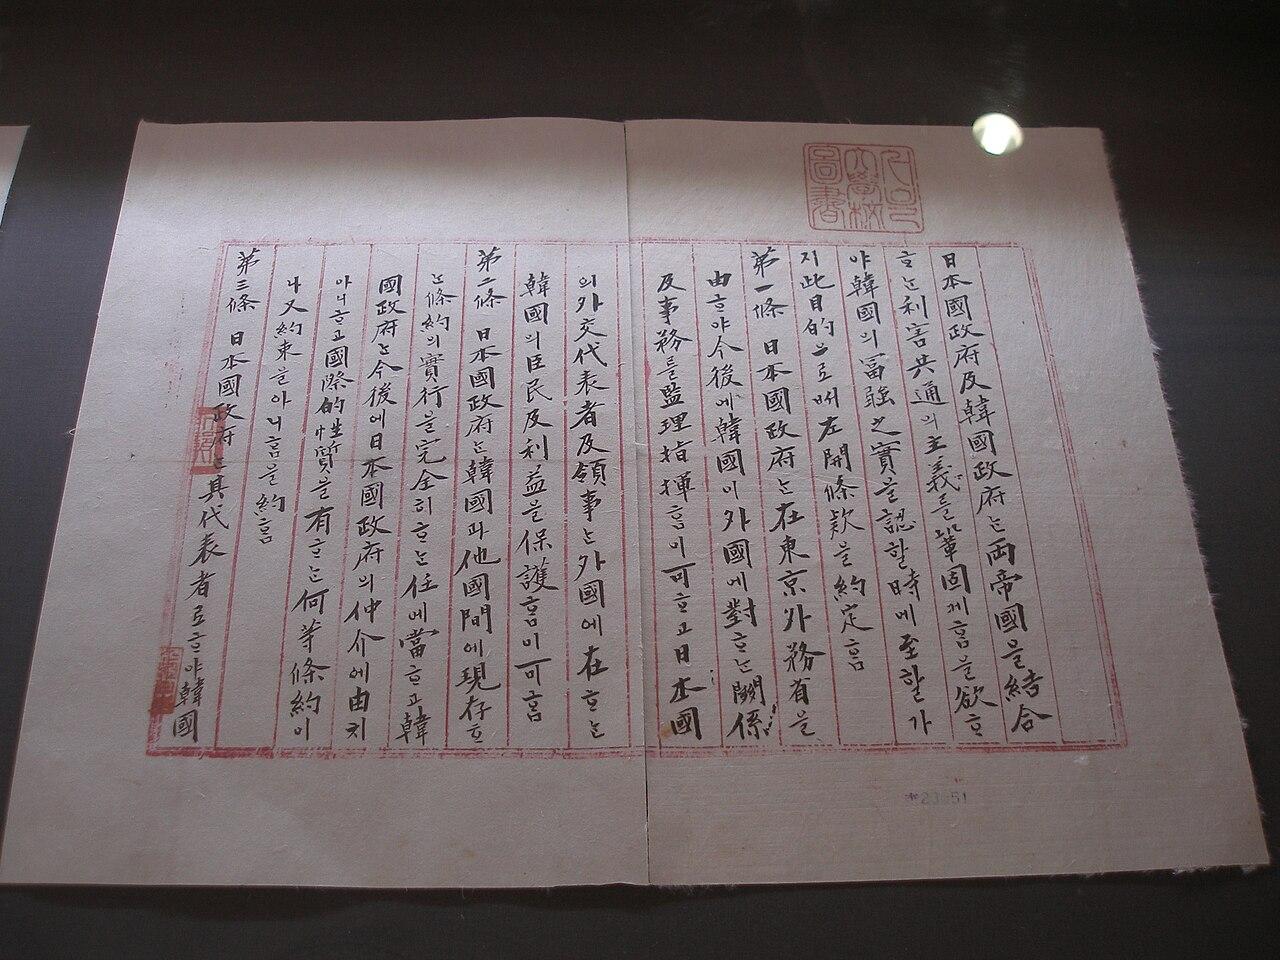 서울大學校圖書
日本國政府及韓國政府는兩帝國을結合
ᄒᆞ는利害共通의主義를鞏固케ᄒᆞᆷ을欲ᄒᆞ
야韓國의富强之實을認할時에至할가
지此目的으로써左開條款을約定ᄒᆞᆷ
第一條 日本國政府는在東京外務省을
由ᄒᆞ야今後에韓國이外國에對ᄒᆞ는關係
及事務를監理指揮ᄒᆞᆷ이可ᄒᆞ고日本國
의外交代表者及領事는外國에在ᄒᆞ는
韓國의臣民及利益을保護ᄒᆞᆷ이可ᄒᆞᆷ
第二條 日本國政府는韓國과他國間에現存ᄒᆞ
는條約의實行을完全히ᄒᆞ는任에當ᄒᆞ고韓
國政府는今後에日本國政府의仲介에由치
아니ᄒᆞ고國際的性質을有ᄒᆞ는何等條約이
나又約束을아니ᄒᆞᆷ을約ᄒᆞᆷ
第三條 日本國政府는其代表者로ᄒᆞ야韓國